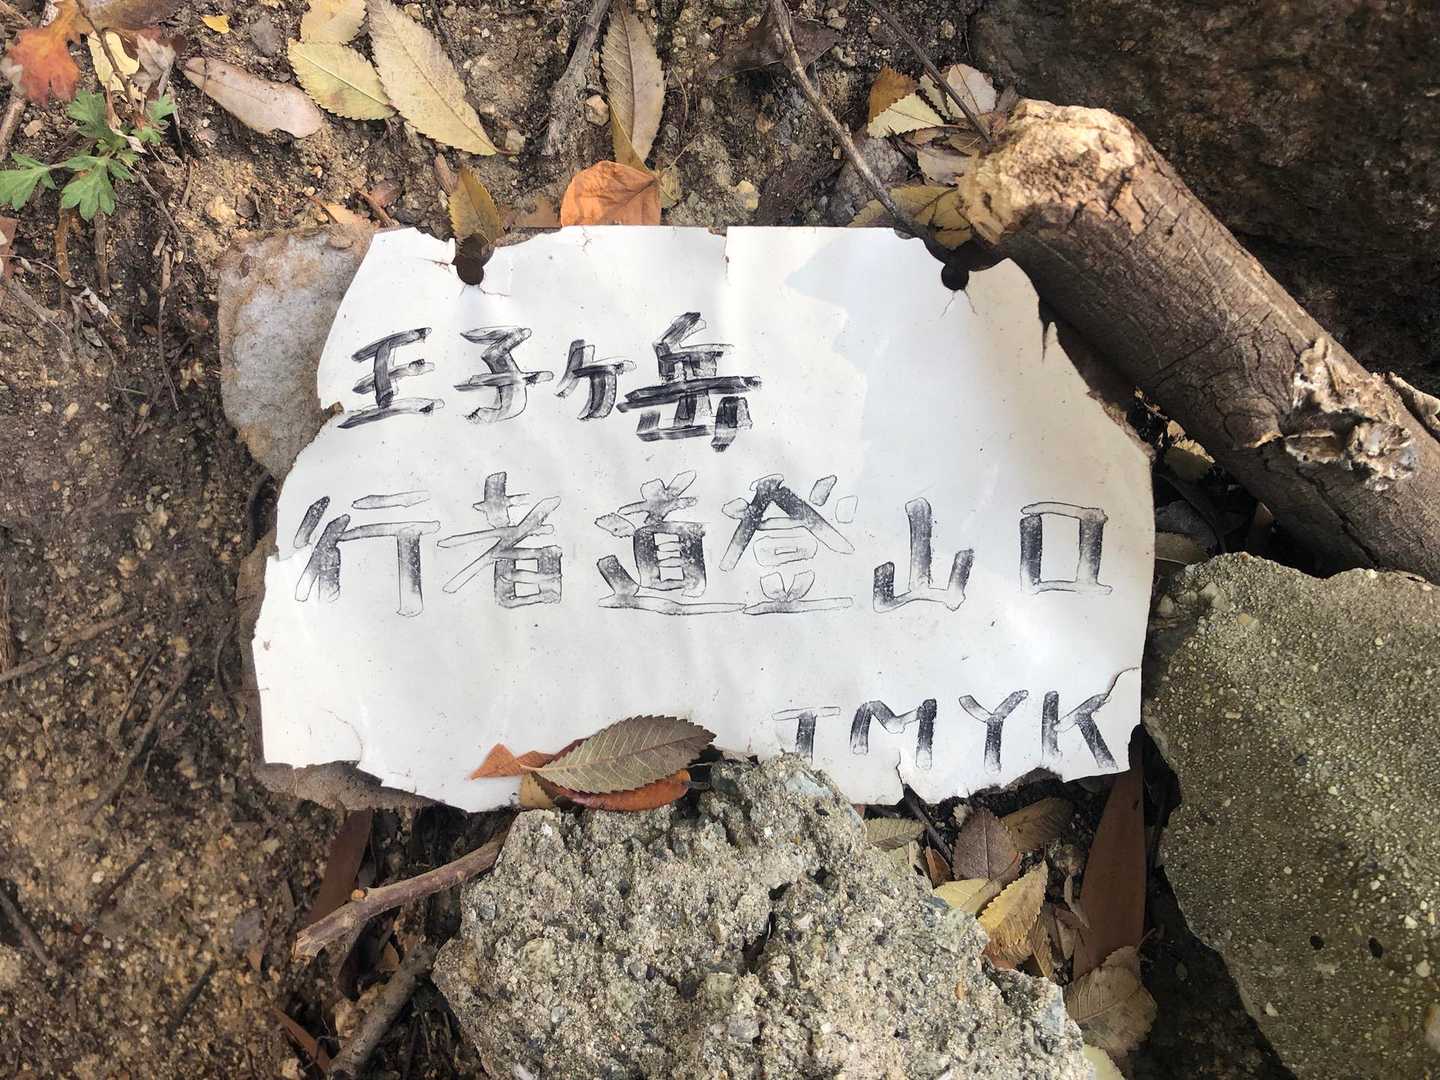 王子ケ岳
行者道登山口
TMYK